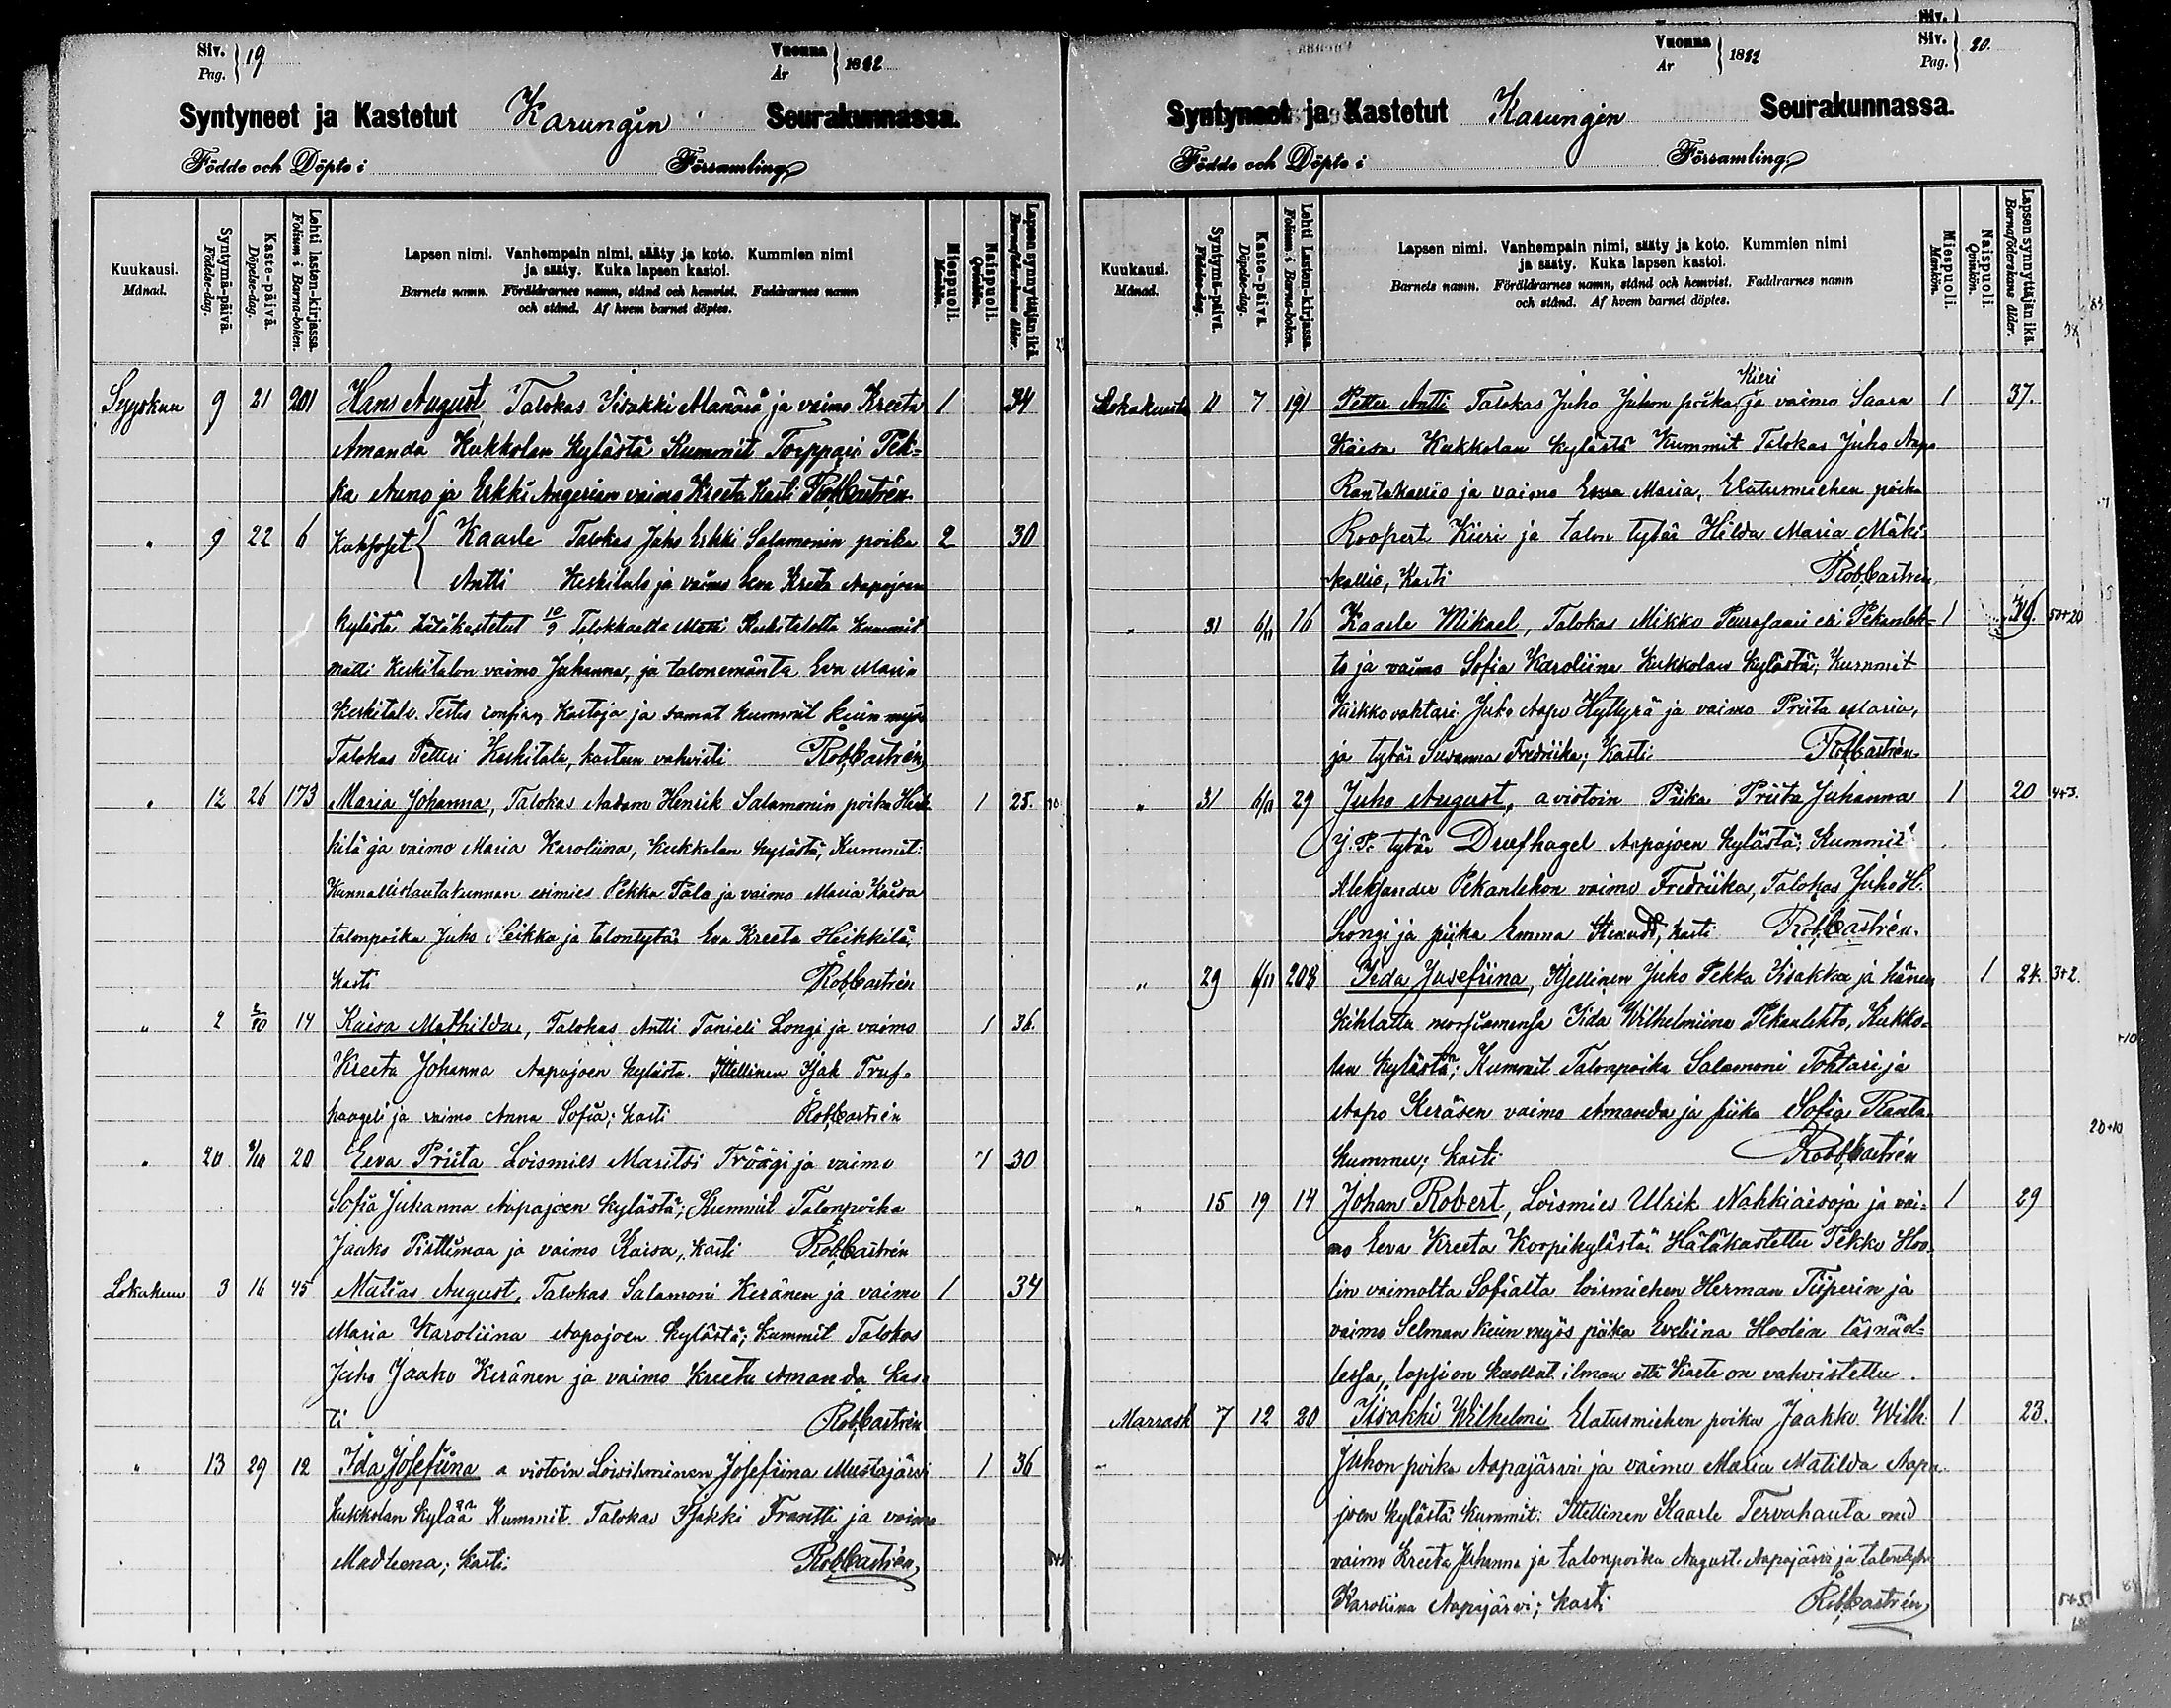 Siv. Pag. 19
Vuonna År 1882
Syntyneet ja Kastetut Karungin Seurakunnassa.
Födde och Döpte i Församling
Kuukausi. Månad.
Syntymä-päivä. Födelse-dag.
Kaste-päivä. Döpelse-dag.
Lehti lasten-kirjassa. Folium i Barna-boken.
Lapsen nimi. Vanhempain nimi, sääty ja koto. Kummien nimi
ja sääty. Kuka lapsen kastoi.
Barnets namn. Föräldrarnes namn, stånd och hemvist. Faddrarnes namn
och stånd. Af hvem barnet döptes.
Miespuoli. Mankön.
Naispuoli. Qvinkön.
Lapsen synnyttäjän ikä. Barnaföderskans ålder.
Syyskuu 9 21 201 Hans August, Talokas Iisakki Manära ja vaimo Kreeta 1 34
Amanda Kukkolan kylästä Kummit Torppari Pek-
ka Auno ja Erkki Angerian vaimo Kreeta Kasti RobCastrén
" 9 22 6 Kaksoset Kaarle Talokas Juho Erkki Salamonin poika 2 30
Antti Keskitalo ja vaimo Eeva Kreeta Aapajoen
kylästä hätäkastetut 10/9 Talokkaalta Matti Keskitalolta Kummit
Matti Keskitalon vaimo Johanna, ja talonemäntä Eva Maria
Keskitalo. Kastaja ja samat kummit kuin myös
Talokas Petteri Keskitalo, kasteen vahvisti RobCastrén
" 12 26 173 Maria Johanna, Talokas Aadam Henrik Salamonin poika Heik- 1 25.
kilä ja vaimo Maria Karoliina, Kukkolan kylästä, Kummit:
Kunnallislautakunnan esimies Pekka Talo ja vaimo Maria Kaisa
talonpoika Juho Heikka ja talontytär Eva Kreeta Heikkilä,
Kasti RobCastrén
" 2 8/10 14 Kaisa Mathilda, Talokas Antti Tanieli Longi ja vaimo 1 36.
Kreeta Johanna Aapajoen kylästä. Itellinen Isak Truf-
haageli ja vaimo Anna Sofia; kasti RobCastrén
" 20 /10 20 Eeva Priita Loismies Maritsi Tröögi ja vaimo 1 30
Sofia Juhanna Aapajoen kylästä; Kummit Talonpoika
Jaako Pirttimaa ja vaimo Kaisa, kasti RobCastrén
Lokakuu 3 16 45 Matias August, Talokas Salamoni Keränen ja vaimo 1 34
Maria Karoliina Aapajoen kylästä; Kummit Talokas
Juho Jaako Keränen ja vaimo Kreeta Amanda Kas-
ti RobCastrén
" 13 29 12 Ida Josefiina aviotoin Loisihminen Josefiina Mustajärvi 1 36
Kukkolan kylää Kummit Talokas Isakki Frantti ja vaimo
Madleena; Kasti RobCastrén
Siv.
Siv. Pag. 20.
Vuonna År 1882
Syntyneet ja Kastetut Karungin Seurakunnassa.
Födde och Döpte i Församling
Kuukausi. Månad.
Syntymä-päivä. Födelse-dag.
Kaste-päivä. Döpelse-dag.
Lehti Lasten-kirjassa. Folium i Barna-boken.
Lapsen nimi. Vanhempain nimi, sääty ja koto. Kummien nimi
ja sääty. Kuka lapsen kastoi.
Barnets namn. Föräldrarnes namn, stånd och hemvist. Faddrarnes namn
och stånd. Af hvem barnet döptes.
Miespuoli. Mankön.
Naispuoli. Qvinkön.
Lapsen synnyttäjän ikä. Barnaföderskans ålder.
Kieri
Lokakuulta 11 7 191 Petter Antti Talokas Juho Juhon poika ja vaimo Saara 1 37.
Kaisa Kukkolan kylästä Kummit Talokas Juho Aapo
Rantakallio ja vaimo Maria, Elatusmiehen poika
Roopert Kieri ja talon tytär Hilda Maria Mäki-
kallio, Kasti RobCastrén
" 31 6/11 16 Kaarle Mikael, Talokas Mikko Peurasaari eli Pekanleh- 1 39. 50+20
to ja vaimo Sofia Karoliina Kukkolan kylästä; Kummit
Kirkkovahtari Juho Aapo Hyttyrä ja vaimo Priita Maria,
ja tytär Susanna Fredriika; Kasti RobCastrén
" 31 6/11 29 Juho August, aviotoin Piika Priita Juhanna 1 20 4+3.
J. P. tytär Drufhagel Aapajoen kylästä; Kummit
Aleksander Pekanlehon vaimo Fredriika, Talokas Juho H.
Longi ja piika Emma Strand, kasti RobCastrén.
" 29 6/11 208 Iida Josefiina, Itellinen Juho Pekka Iisakka ja hänen 1 24. 3+2.
kihlattu morsiamensa Iida Wilhelmiina Pekanlehto, Kukko-
lan kylästä; Kummit Talonpoika Salamoni Tohtari ja
Aapo Keräsen vaimo Amanda ja piika Sofia Rauta-
kummu; kasti RobCastrén
" 15 19 14 Johan Robert, Loismies Ulrik Nahkiaisoja ja vai- 1 29
mo Eeva Kreeta Korpikylästä. Hätäkastettu Pekka Hoo-
lin vaimolta Sofialta loismiehen Herman Tiiperin ja
vaimo Selman kuin myös piika Eveliina Hoolin läsnäol-
lessa, lapsi on kuollut ilman että kaste on vahvistettu.
Marrask 7 12 20 Iisakki Wilhelmi Elatusmiehen poika Jaakko Wilh. 1 23.
Juhon poika Aapajärvi ja vaimo Maria Matilda Aapa-
joen kylästä Kummit: Itellinen Kaarle Tervahauta med
vaimo Kreeta Johanna ja talonpoika August Aapajärvi ja talontytär
Karoliina Aapajärvi; kasti RobCastrén
+10
20+10